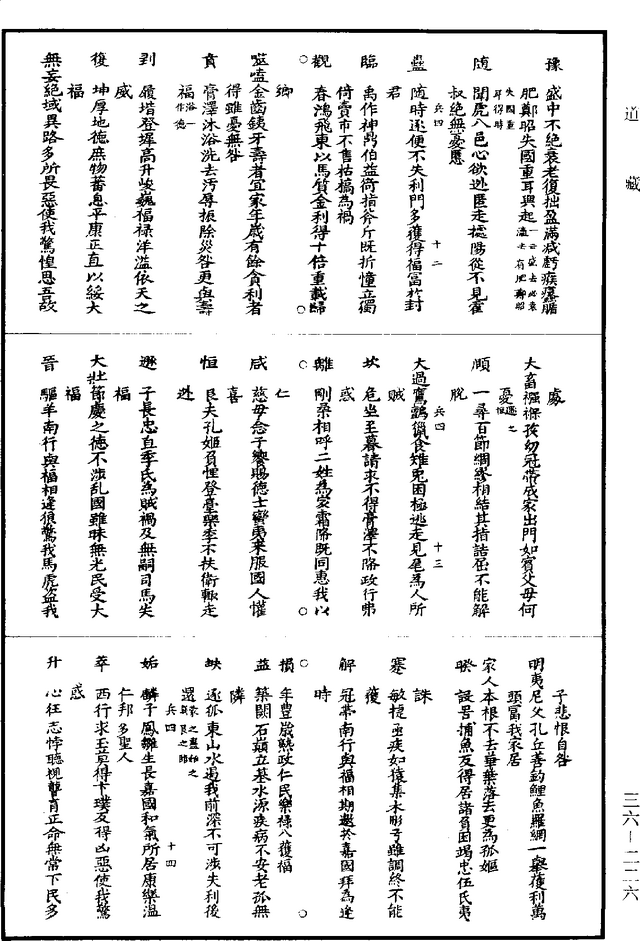 道藏
豫 盛中不絶衰老復拙盈滿減虧疾瘳腯
肥鄭昭失國重耳興起
失國重耳得時
随 閉虎入邑心欲逃匿走據陽從不見霍
叔絶無憂慝
兵四 十二
蠱 随時逐便不失利門多獲得福富於封
君
臨 禹作神鼎伯益銜指斧斤既折憧立獨
倚賣市不售枯槁為禍
觀 春鴻飛東以馬質金利得十倍重載歸
鄉
噬嗑金齒鐵牙壽耇宜家年歲有餘貪利者
得雖憂無咎
賁 膏澤沐浴洗去汚辱振除災咎更與壽
福 浴一作德
剝 嶺塔登墀高升峻巍福祿洋溢依天之
威
復 坤厚地德庶物蕃息平康正直以綏大
福
無妄絶域異路多所畏惡使我驚惶思吾故
處
大畜襁褓孩幼冠帶成家出門如賓父母何
憂
頤 一尋百節綢繆相結其指詰屈不能解
脫
兵四 十三
大過鷹鷂獵食雉兎困極逃走見尾為人所
賊
坎 危坐至暮請求不得膏澤不降政行弗
惑
離 剛柔相呼二姓為家霜降既同惠我以
仁
咸 慈母念子饗賜德士蠻夷来服國人懽
喜
恒 艮夫孔姬負悝登臺樂季不扶衛輒走
逃
遯 子長忠直李氏為賊禍及無嗣司馬失
福
大壯節慶之德不涉乱國雖昧無光民受大
福
晉 驅羊南行與福相逢狼驚我馬虎盜我
子悲恨自咎
明夷尼父孔丘善釣鯉魚羅網一舉獲利萬
頭富我家居
家人本根不去華葉落去更為孤嫗
睽 設罟捕魚反得居諸貧困竭忠伍氏夷
誅
蹇 敏捷亟疾如猿集木彤弓雖調終不能
獲
解 冠帶南行與福相期邀於嘉國拜為逢
時
損 年豊歲熟政仁民樂祿入獲福
益 築闕石巔立基水源疾病不安老孤無
隣
夬 逐狐東山水遏我前深不可涉失利後
還
兵四 十四
姤 麟子鳳雛生長嘉國和氣所居康樂溫
仁邦多聖人
萃 西行求玉冀得卞璞反得凶惡使我驚
惑
升 心狂志悖聽視聾盲正命無常下民多
三六—二二六